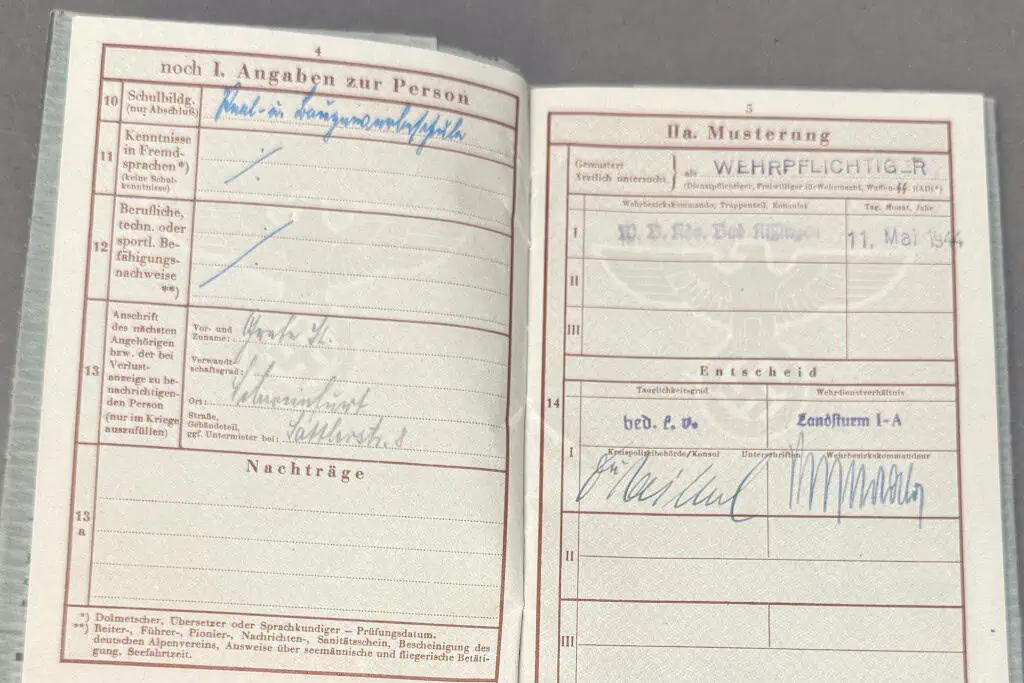 4
noch I. Angaben zur Person
10
Schulbildg.
(nur Abschluß)
Real- u. Baugewerbeschule
11
Kenntnisse
in Fremd-
sprachen*)
(keine Schul-
kenntnisse)
12
Berufliche,
techn. oder
sportl. Be-
fähigungs-
nachweise
**)
13
Anschrift
des nächsten
Angehörigen
bzw. der bei
Verlust-
anzeige zu be-
nachrichtigen-
den Person
(nur im Kriege
auszufüllen)
Vor- und
Zuname:
Verwandt-
schaftsgrad:
Ort: Schweinfurt
Straße,
Gebäudeteil,
ggf. Untermieter bei: Sattlerstr. 8
Nachträge
13
a
*) Dolmetscher, Übersetzer oder Sprachkundiger – Prüfungsdatum.
**) Reiter-, Führer-, Pionier-, Nachrichten-, Sanitätsschein, Bescheinigung des
deutschen Alpenvereins, Ausweise über seemännische und fliegerische Betäti-
gung, Seefahrtzeit.
5
IIa. Musterung
Gemustert
Ärztlich untersucht
als WEHRPFLICHTIGER
(Dienstpflichtiger, Freiwilliger für Wehrmacht, Waffen-SS, RAD)*)
Wehrbezirkskommando, Truppenteil, Konsulat
Tag, Monat, Jahr
I
W. B. Kdo. Bad Kissingen
11. Mai 1944
II
III
Entscheid
14
Tauglichkeitsgrad
Wehrdienstverhältnis
bed. k. v.
Landsturm I-A
I
Kreispolizeibehörde/Konsul
Unterschriften
Wehrbezirkskommandeur
II
III